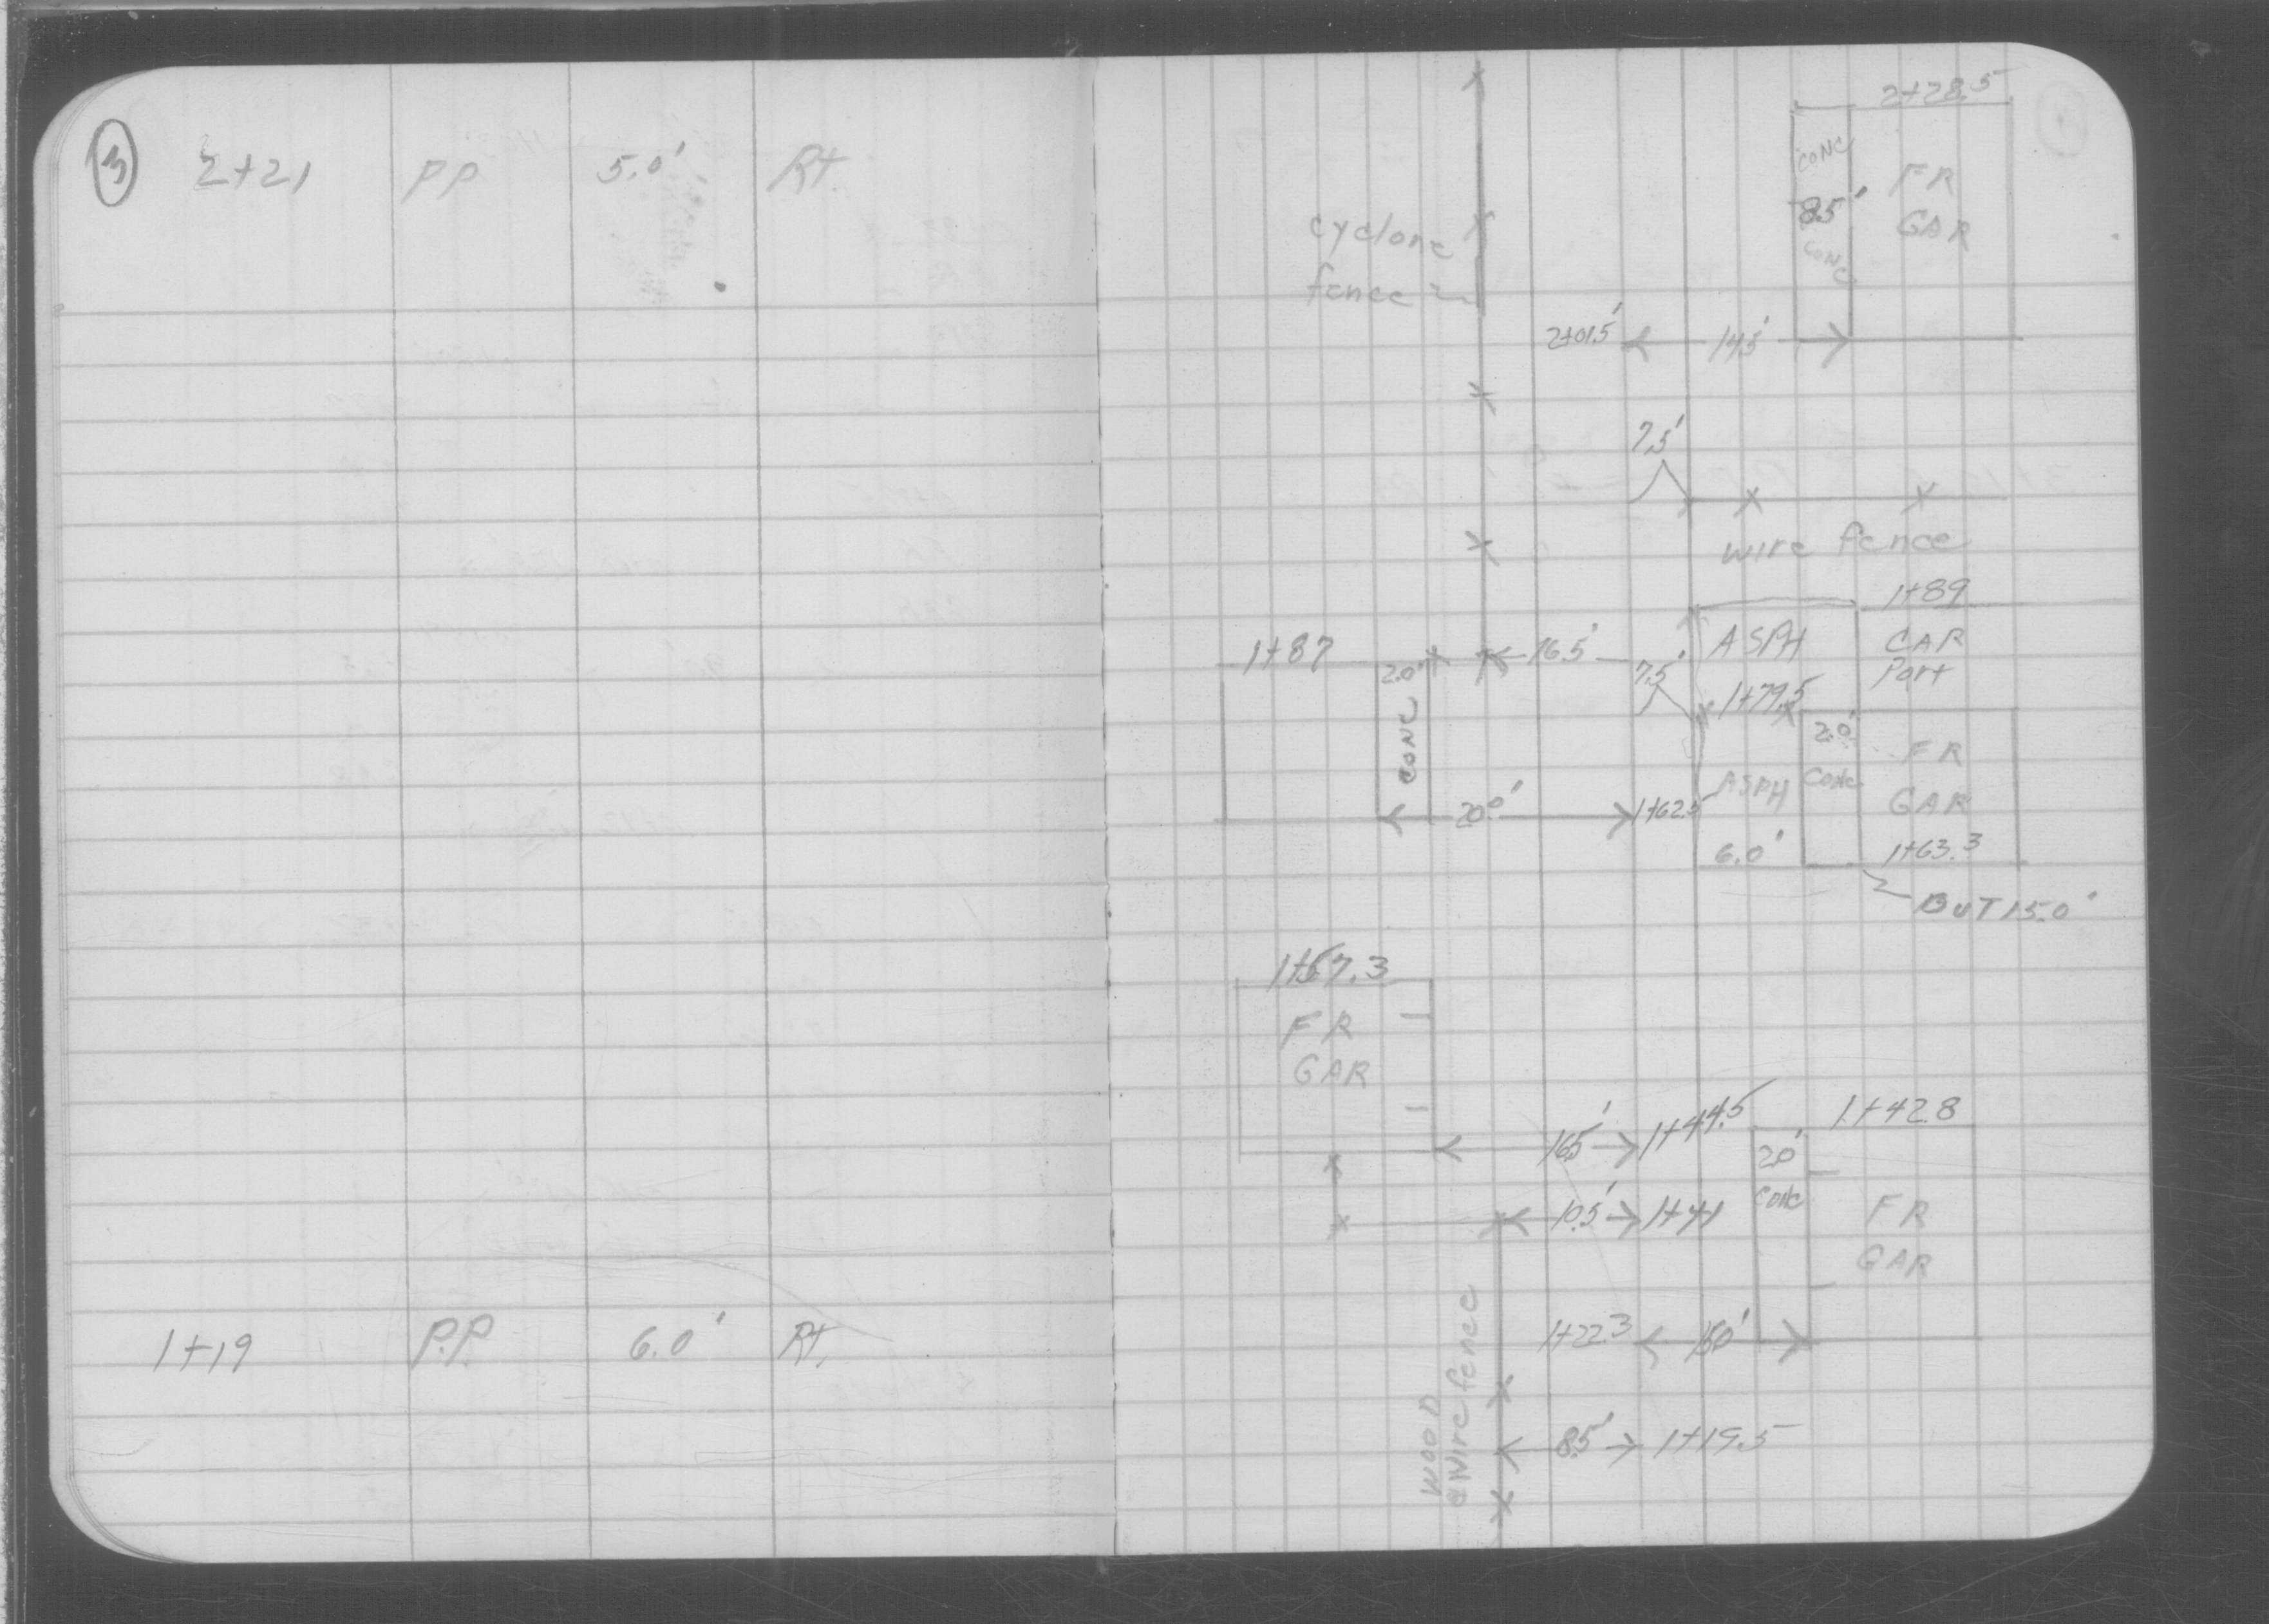 3 2+21 PP 5.0' Rt.
1+19 P.P. 6.0' Rt.
2+28.5
CONC
FR
8.5'
GAR
CONC
cyclone
fence
2+01.5' 14.5'
7.5'
wire fence
1+89
ASPH CAR
Port
1+87 2.0' 16.5' 7.5'
1+79.5
2.0'
CONC
FR
ASPH CONC
GAR
20.0' 1+62.5
6.0' 1+63.3
OUT 15.0'
1+67.3
FR
GAR
16.5' 1+44.5 1+42.8
2.0'
CONC
10.5' 1+41
FR
GAR
1+22.3 15.0'
WOOD
& Wire fence
8.5' 1+19.5